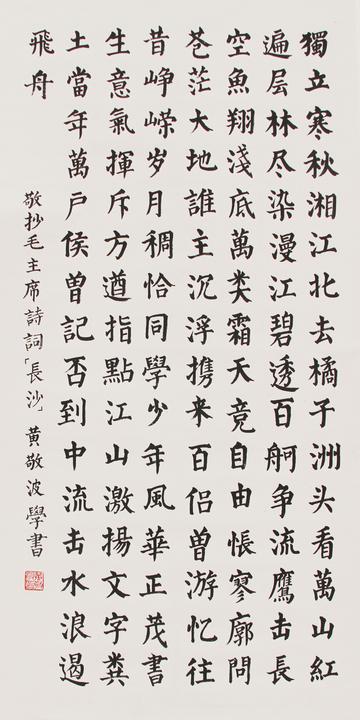 獨立寒秋湘江北去橘子洲头看萬山紅
遍层林尽染漫江碧透百舸争流鷹击長
空魚翔淺底萬类霜天竞自由悵寥廓問
苍茫大地誰主沉浮携来百侣曾游忆往
昔峥嵘岁月稠恰同學少年風華正茂書
生意氣揮斥方遒指點江山激揚文字粪
土當年萬户侯曾記否到中流击水浪遏
飛舟
敬抄毛主席詩詞「長沙」黄敬波學書